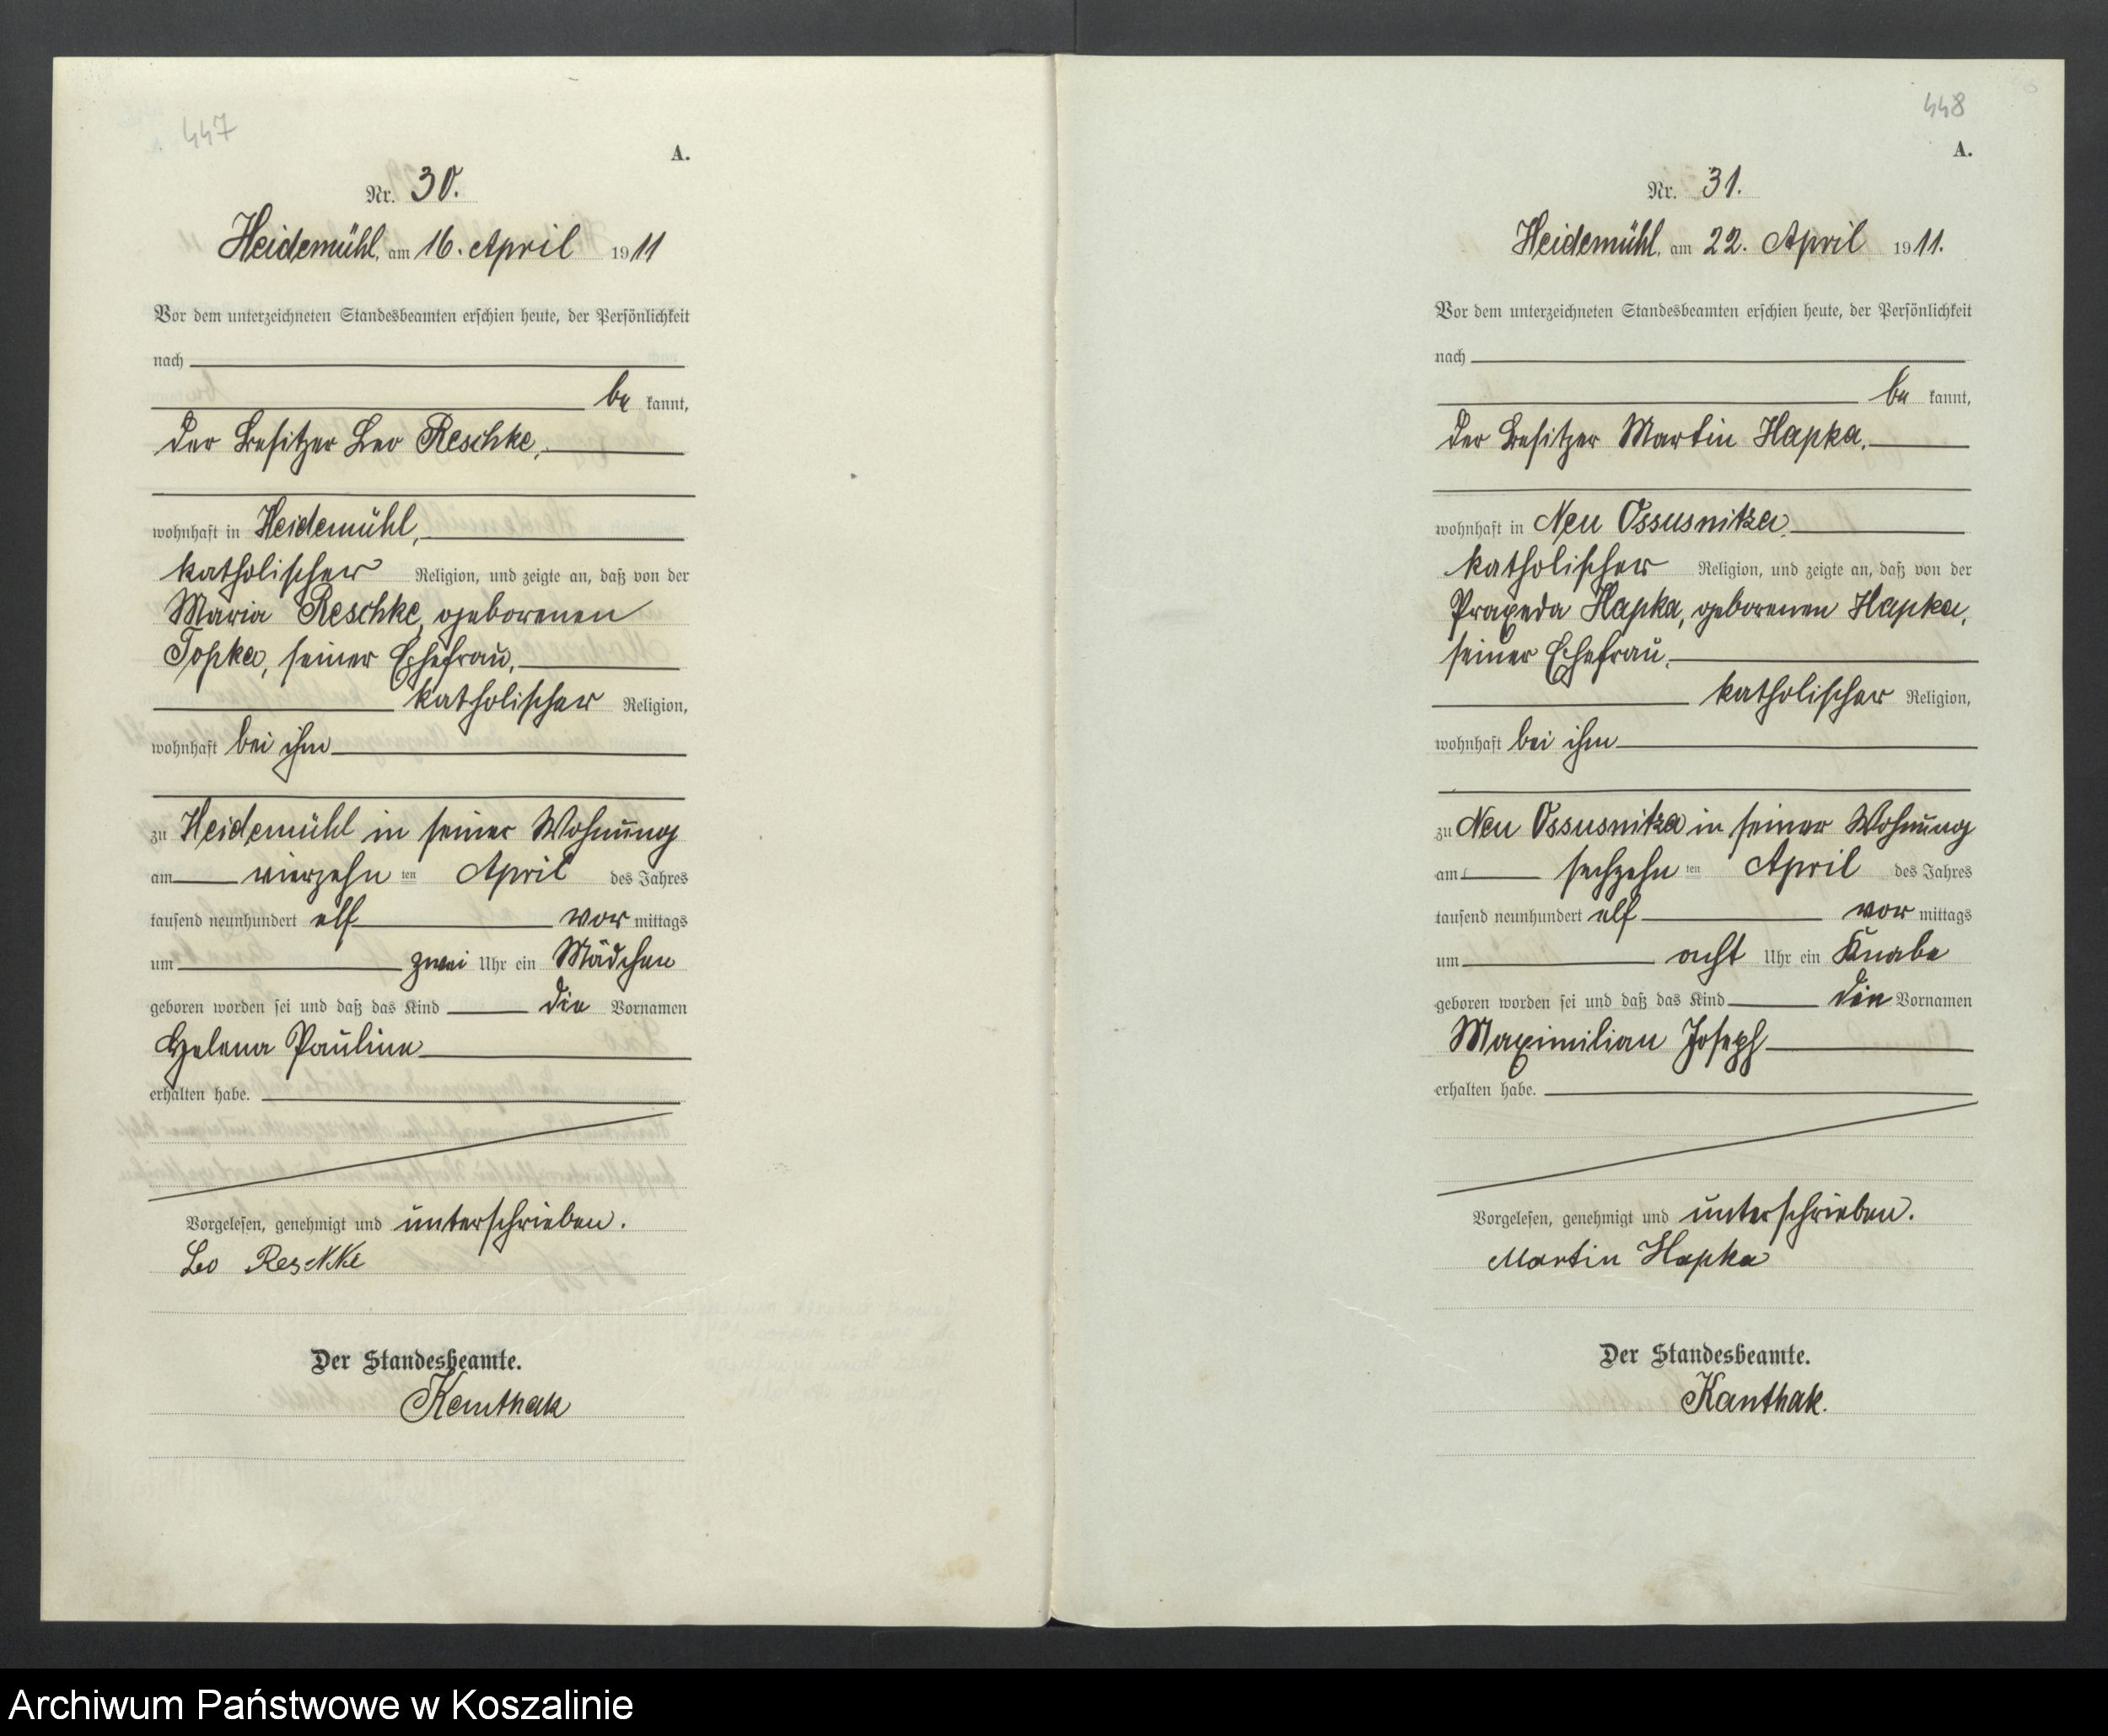 447
A.
Nr. 30.
Heidemühl, am 16. April 1911
Vor dem unterzeichneten Standesbeamten erschien heute, der Persönlichkeit
nach
be kannt,
der Besitzer Leo Reschke,
wohnhaft in Heidemühl,
katholischer Religion, und zeigte an, daß von der
Maria Reschke, geborenen
Topka, seiner Ehefrau,
katholischer Religion,
wohnhaft bei ihm
zu Heidemühl in seiner Wohnung
am vierzehn ten April des Jahres
tausend neunhundert elf vor mittags
um zwei Uhr ein Mädchen
geboren worden sei und daß das Kind die Vornamen
Helena Pauline
erhalten habe.
Vorgelesen, genehmigt und unterschrieben.
Leo Reschke
Der Standesbeamte.
Kanthak
448
A.
Nr. 31.
Heidemühl, am 22. April 1911.
Vor dem unterzeichneten Standesbeamten erschien heute, der Persönlichkeit
nach
be kannt,
der Besitzer Martin Hapka,
wohnhaft in Neu Ossusnitza,
katholischer Religion, und zeigte an, daß von der
Praxeda Hapka, geborenen Hapka,
seiner Ehefrau,
katholischer Religion,
wohnhaft bei ihm
zu Neu Ossusnitza in seiner Wohnung
am sechzehn ten April des Jahres
tausend neunhundert elf vor mittags
um acht Uhr ein Knabe
geboren worden sei und daß das Kind die Vornamen
Maximilian Joseph
erhalten habe.
Vorgelesen, genehmigt und unterschrieben.
Martin Hapka
Der Standesbeamte.
Kanthak.
Archiwum Państwowe w Koszalinie